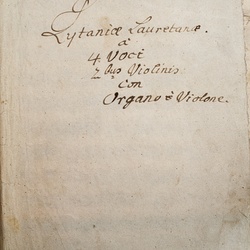 Lytaniæ Lauretanæ.
à
4 Voci
2bus Violinis
con
Organo è Violone.